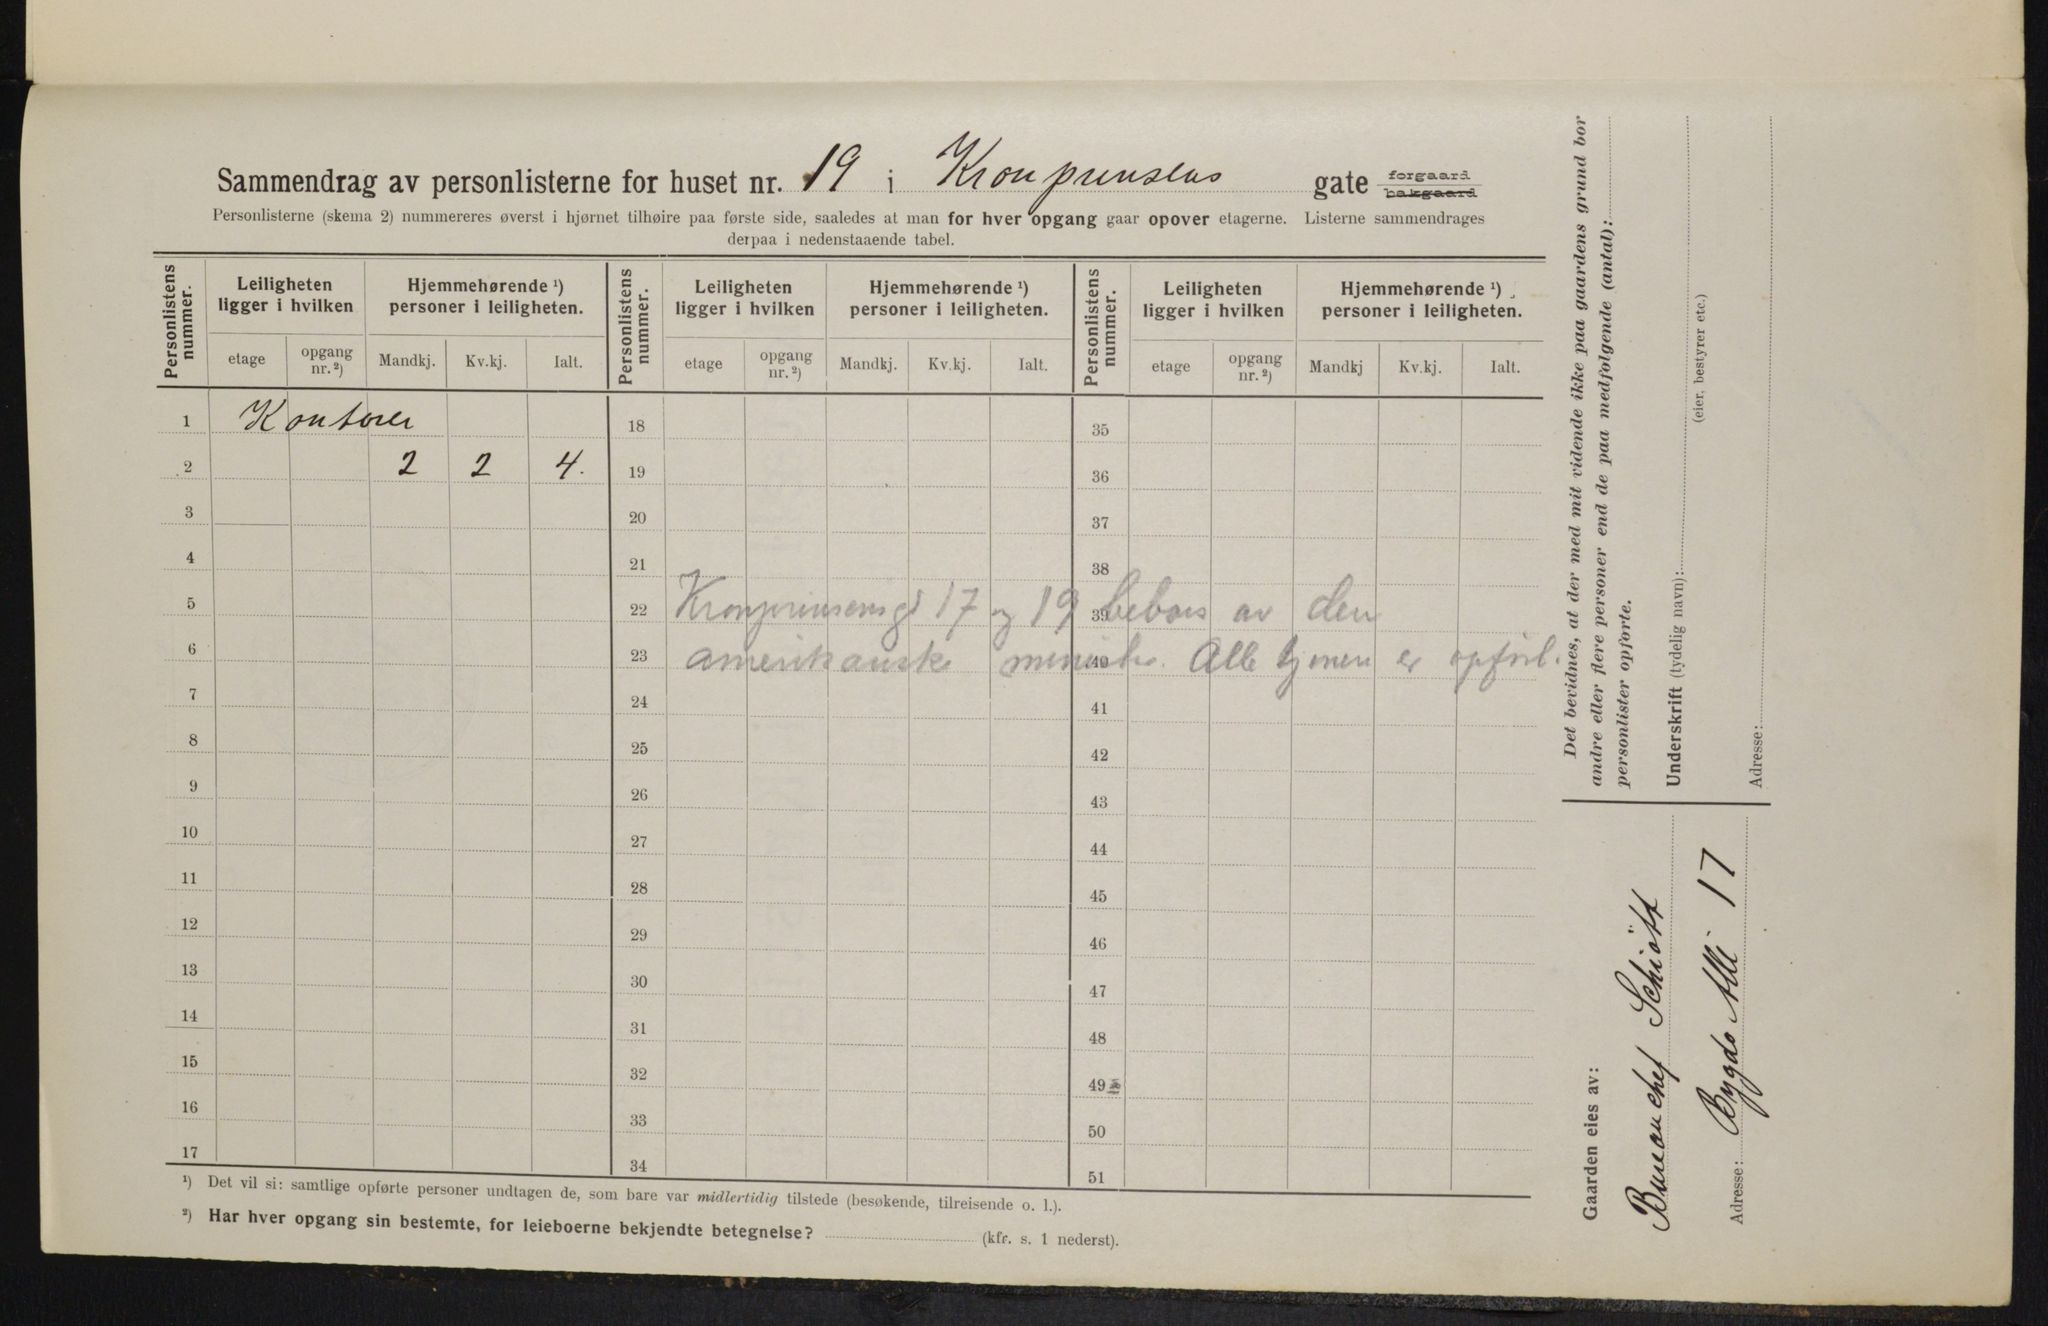 Sammendrag av personlisterne for huset nr. 19 i Kronprinsens gate forgaard bakgaard
Personlisterne (skema 2) nummereres øverst i hjørnet tilhøire paa første side, saaledes at man for hver opgang gaar opover etagerne. Listerne sammendrages
derpaa i nedenstaaende tabel.
Personlistens nummer. Leiligheten ligger i hvilken Hjemmehørende ¹) personer i leiligheten. Personlistens nummer. Leiligheten ligger i hvilken Hjemmehørende ¹) personer i leiligheten. Personlistens nummer. Leiligheten ligger i hvilken Hjemmehørende ¹) personer i leiligheten.
etage opgang nr. ²) Mandkj. Kv.kj. Ialt. etage opgang nr. ²) Mandkj. Kv.kj. Ialt. etage opgang nr. ²) Mandkj Kv.kj. Ialt.
1 Kontorer 18 35
2 2 2 4. 19 36
3 20 37
4 21 38
5 22 Kronprinsensgt 17 og 19 39 beboes av den
6 23 amerikanske minister. 40 Alle tjenere er opført.
7 24 41
8 25 42
9 26 43
10 27 44
11 28 45
12 29 46
13 30 47
14 31 48
15 32 49
16 33 50
17 34 51
¹) Det vil si: samtlige opførte personer undtagen de, som bare var midlertidig tilstede (besøkende, tilreisende o. l.).
²) Har hver opgang sin bestemte, for leieboerne bekjendte betegnelse? (kfr. s. 1 nederst).
Det bevidnes, at der med mit vidende ikke paa gaardens grund bor
andre eller flere personer end de paa medfølgende (antal):
personlister opførte.
Underskrift (tydelig navn):
(eier, bestyrer etc.)
Adresse:
Gaarden eies av:
Bureauchef Schiøtt
Adresse: Bygdø Allé 17